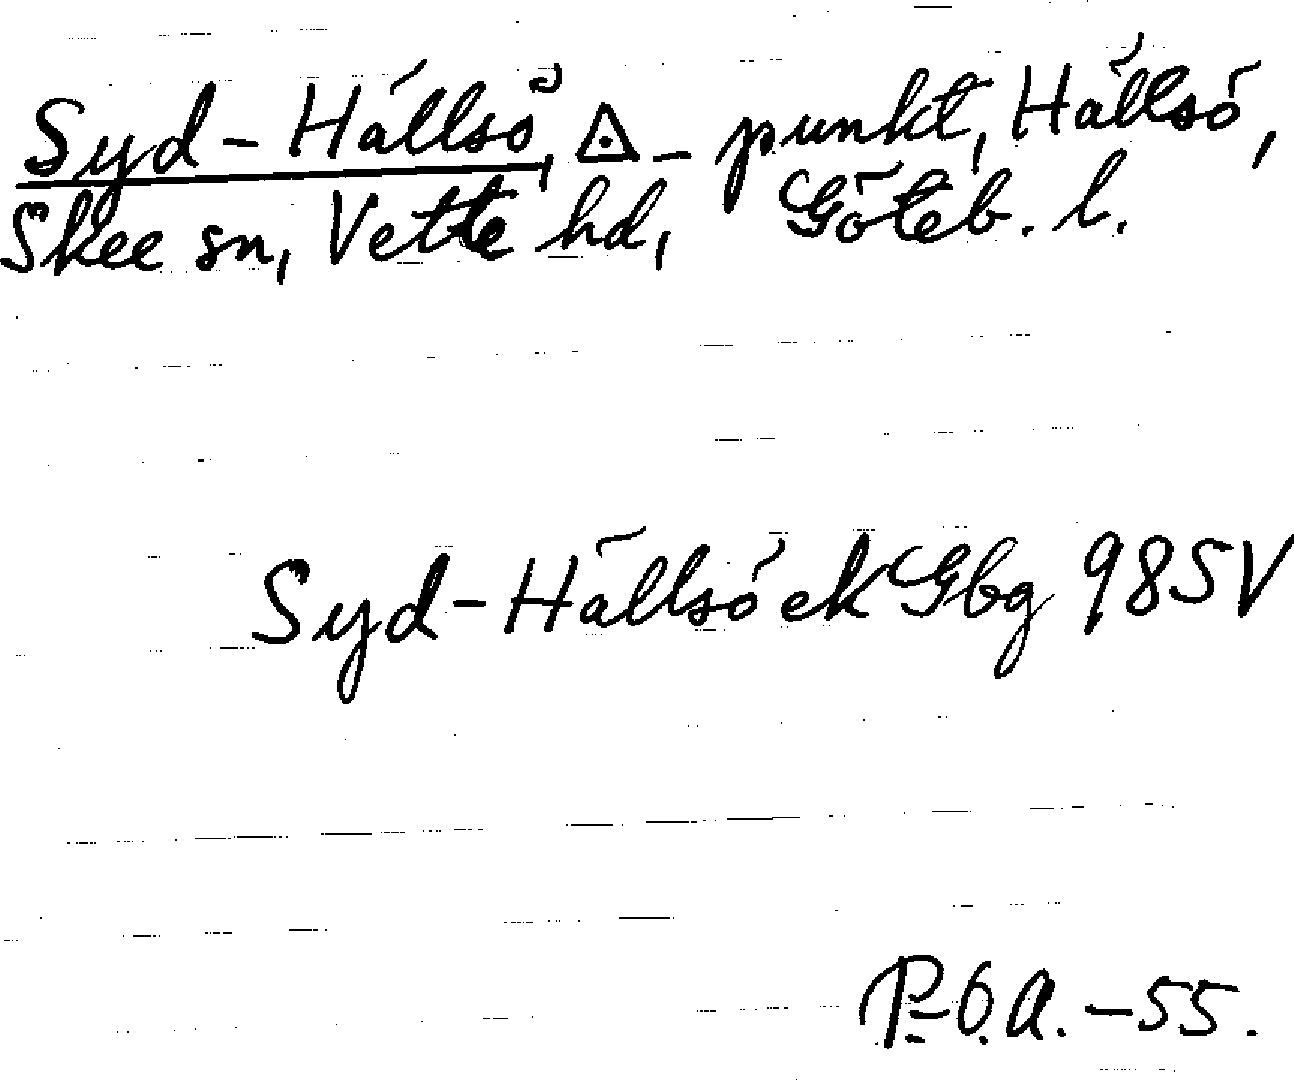 Syd-Hällsö, △-punkt, Hällsö,
Skee sn, Vette hd, Göteb. l.
Syd-Hällsö ek Gbg 985V
P.-O. A. -55.